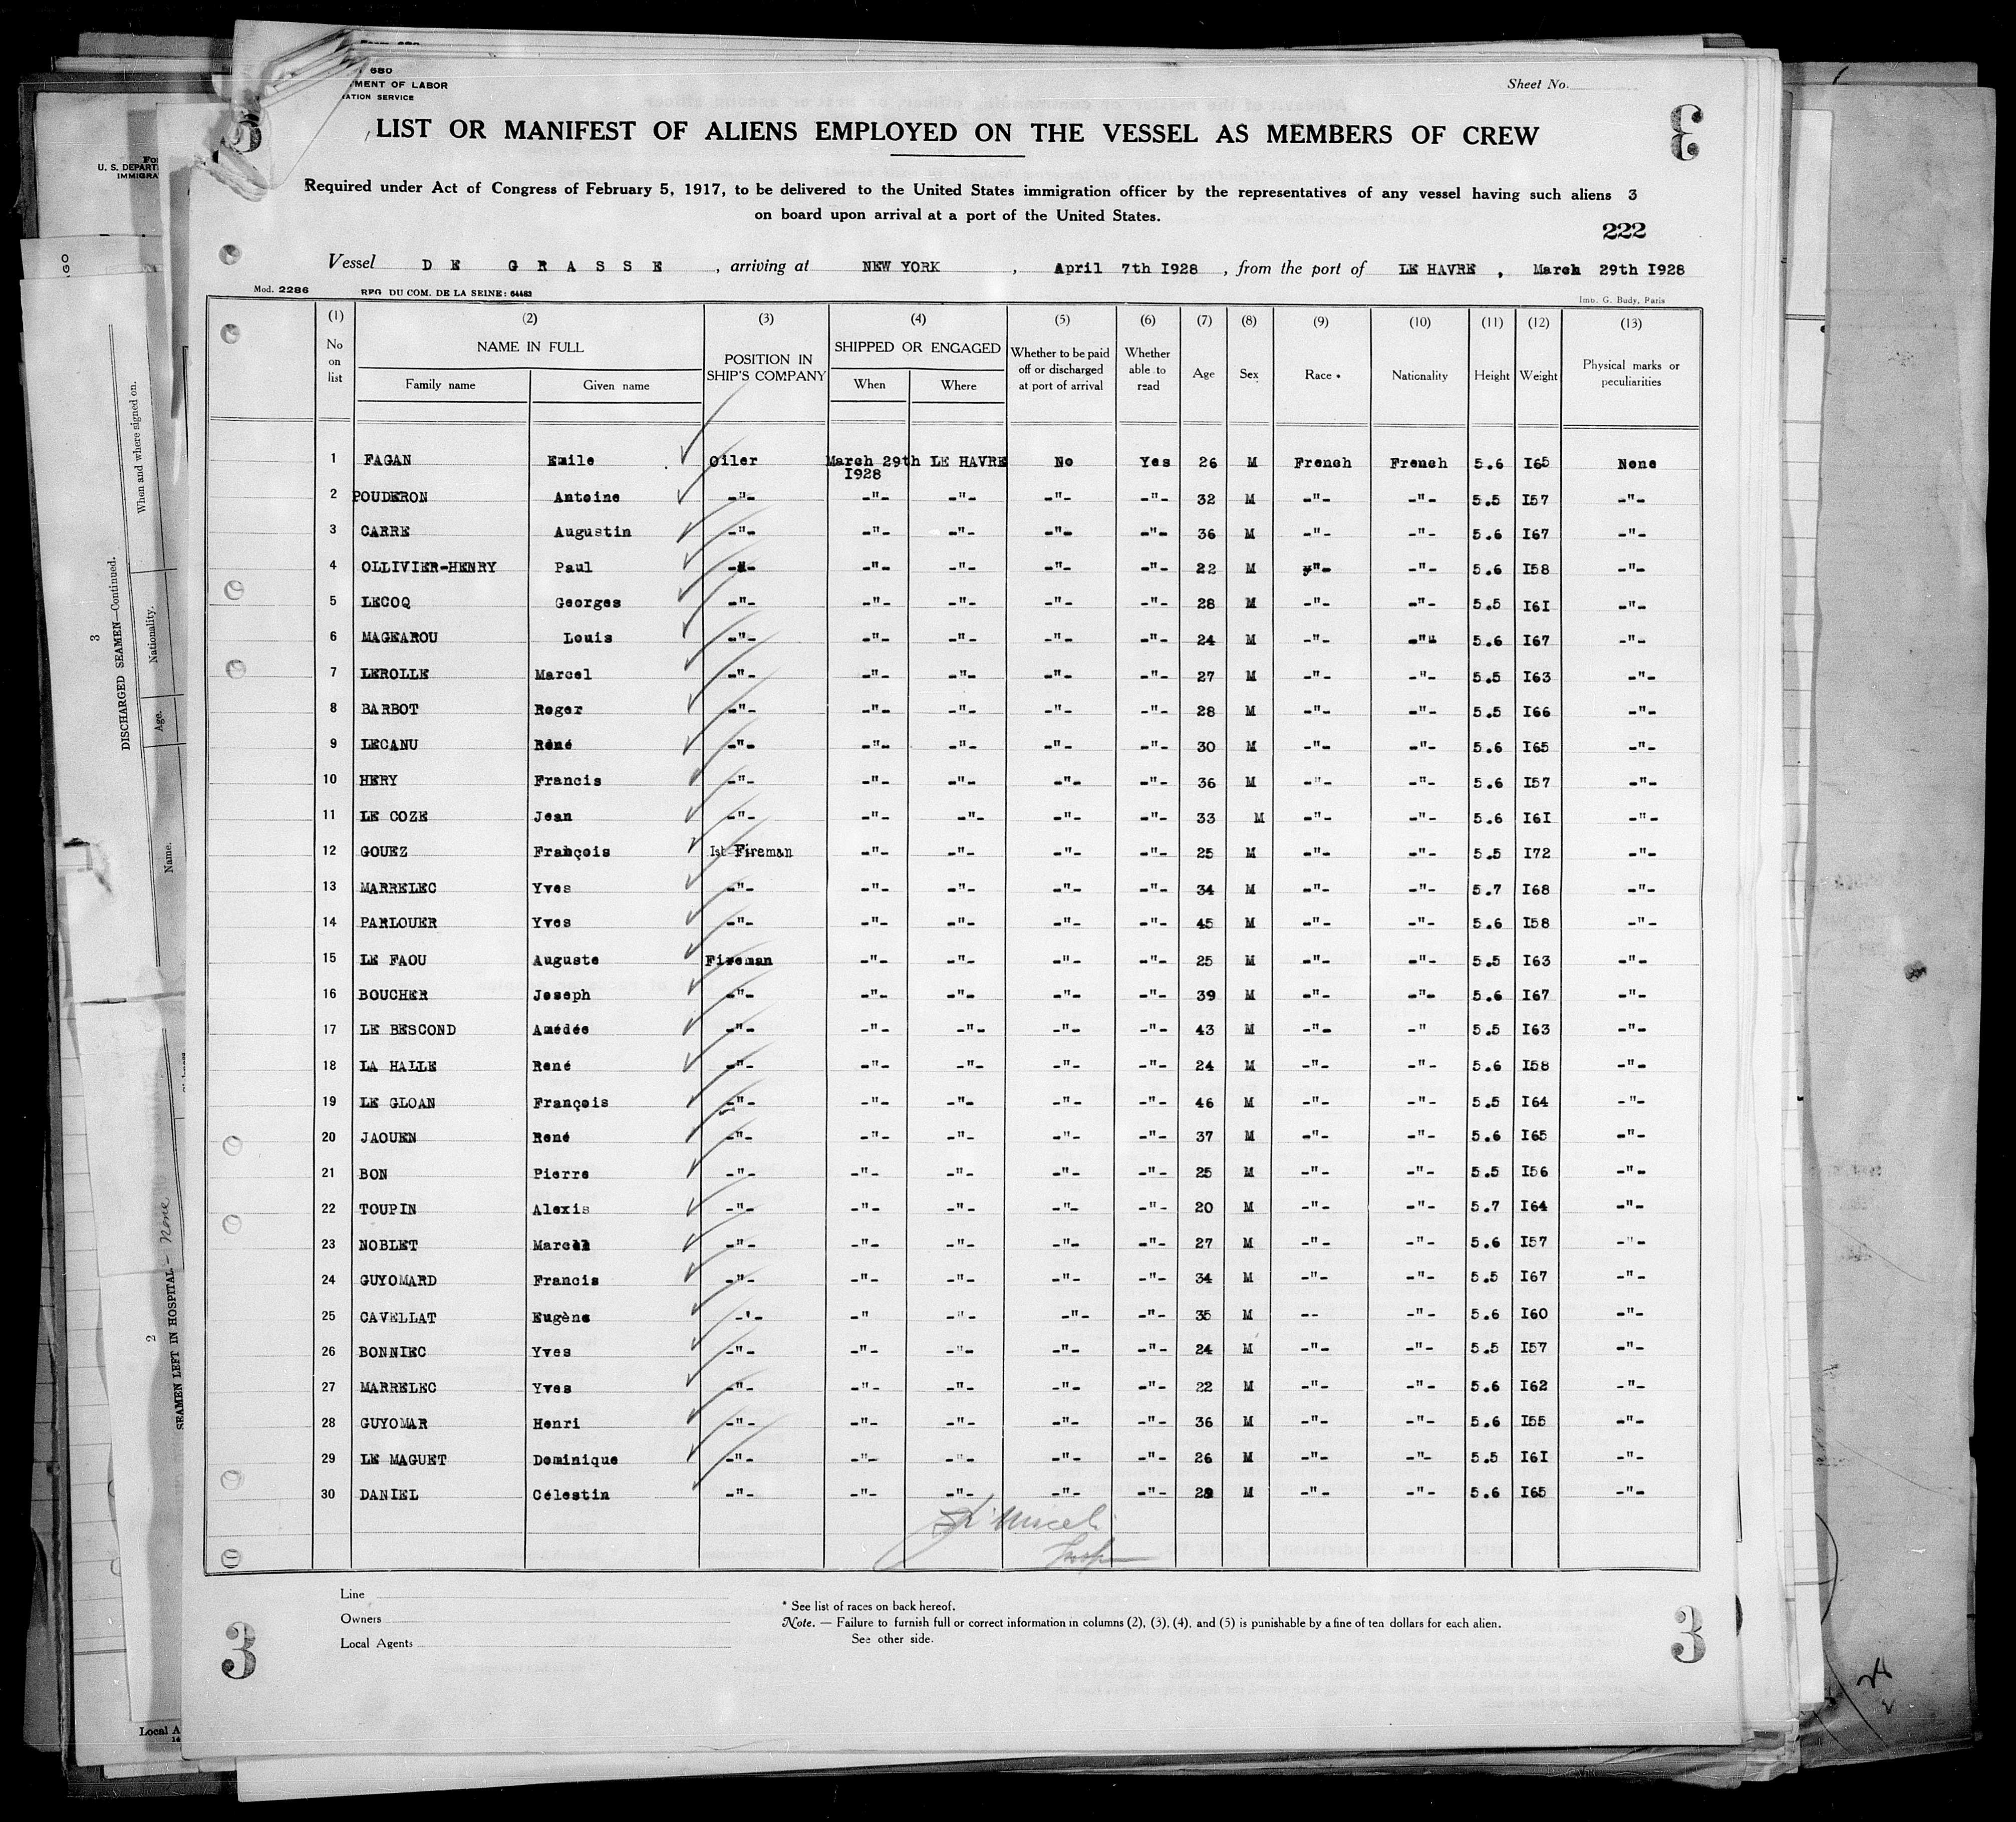 680
MENT OF LABOR
ATION SERVICE
Sheet No.
LIST OR MANIFEST OF ALIENS EMPLOYED ON THE VESSEL AS MEMBERS OF CREW
3
Required under Act of Congress of February 5, 1917, to be delivered to the United States immigration officer by the representatives of any vessel having such aliens 3
on board upon arrival at a port of the United States.
222
Vessel DE GRASSE , arriving at NEW YORK , April 7th I928 , from the port of LE HAVRE , March 29th I928
Mod. 2286 REG. DU COM. DE LA SEINE: 64483 Imp. G. Budy, Paris
(1) (2) (3) (4) (5) (6) (7) (8) (9) (10) (11) (12) (13)
No on list NAME IN FULL Family name Given name POSITION IN SHIP'S COMPANY SHIPPED OR ENGAGED When Where Whether to be paid off or discharged at port of arrival Whether able to read Age Sex Race * Nationality Height Weight Physical marks or peculiarities
1 FAGAN Emile Oiler March 29th I928 LE HAVRE No Yes 26 M French French 5.6 I65 None
2 POUDERON Antoine -"- -"- -"- -"- -"- 32 M -"- -"- 5.5 I57 -"-
3 CARRE Augustin -"- -"- -"- -"- -"- 36 M -"- -"- 5.6 I67 -"-
4 OLLIVIER-HENRY Paul -"- -"- -"- -"- -"- 22 M -"- -"- 5.6 I58 -"-
5 LECOQ Georges -"- -"- -"- -"- -"- 28 M -"- -"- 5.5 I6I -"-
6 MAGEAROU Louis -"- -"- -"- -"- -"- 24 M -"- -"- 5.6 I67 -"-
7 LEROLLE Marcel -"- -"- -"- -"- -"- 27 M -"- -"- 5.5 I63 -"-
8 BARBOT Roger -"- -"- -"- -"- -"- 28 M -"- -"- 5.5 I66 -"-
9 LECANU Réné -"- -"- -"- -"- -"- 30 M -"- -"- 5.6 I65 -"-
10 HERY Francis -"- -"- -"- -"- -"- 36 M -"- -"- 5.6 I57 -"-
11 LE COZE Jean -"- -"- -"- -"- -"- 33 M -"- -"- 5.6 I6I -"-
12 GOUEZ François 1st Fireman -"- -"- -"- -"- 25 M -"- -"- 5.5 I72 -"-
13 MARRELEC Yves -"- -"- -"- -"- -"- 34 M -"- -"- 5.7 I68 -"-
14 PARLOUER Yves -"- -"- -"- -"- -"- 45 M -"- -"- 5.6 I58 -"-
15 LE FAOU Auguste Fireman -"- -"- -"- -"- 25 M -"- -"- 5.5 I63 -"-
16 BOUCHER Joseph -"- -"- -"- -"- -"- 39 M -"- -"- 5.6 I67 -"-
17 LE BESCOND Amédée -"- -"- -"- -"- -"- 43 M -"- -" 5.5 I63 -"-
18 LA HALLE René -"- -"- -"- -"- -"- 24 M -"- -"- 5.6 I58 -"-
19 LE GLOAN François -"- -"- -"- -"- -"- 46 M -"- -"- 5.5 I64 -"-
20 JAOUEN René -"- -"- -"- -"- -"- 37 M -"- -"- 5.6 I65 -"-
21 BON Pierre -"- -"- -"- -"- -"- 25 M -"- -"- 5.5 I56 -"-
22 TOUPIN Alexis -"- -"- -"- -"- -"- 20 M -"- -"- 5.7 I64 -"-
23 NOBLET Marcel -"- -"- -"- -"- -"- 27 M -"- -"- 5.6 I57 -"-
24 GUYOMARD Francis -"- -"- -"- -"- -"- 34 M -"- -"- 5.5 I67 -"-
25 CAVELLAT Eugène -'- -" -"- -"- -"- 35 M -- -"- 5.6 I60 -"-
26 BONNIEC Yves -"- -"- -"- -"- -"- 24 M -"- -"- 5.5 I57 -"-
27 MARRELEC Yves -"- -"- -"- -"- -"- 22 M -"- -"- 5.6 I62 -"-
28 GUYOMAR Henri -"- -"- -"- -"- -"- 36 M -"- -"- 5.6 I55 -"-
29 LE MAGUET Dominique -"- -"- -"- -"- -"- 26 M -"- -"- 5.5 I6I -"-
30 DANIEL Célestin -"- -"- -"- -"- -"- 28 M -"- -"- 5.6 I65 -"-
Line
Owners
Local Agents
* See list of races on back hereof.
Note. — Failure to furnish full or correct information in columns (2), (3), (4), and (5) is punishable by a fine of ten dollars for each alien.
See other side.
3
3
U. S. DEPART
IMMIGRA
DISCHARGED SEAMEN—Continued.
3
When and where signed on.
Nationality.
Age.
Name.
2
SEAMEN LEFT IN HOSPITAL - None
Local A